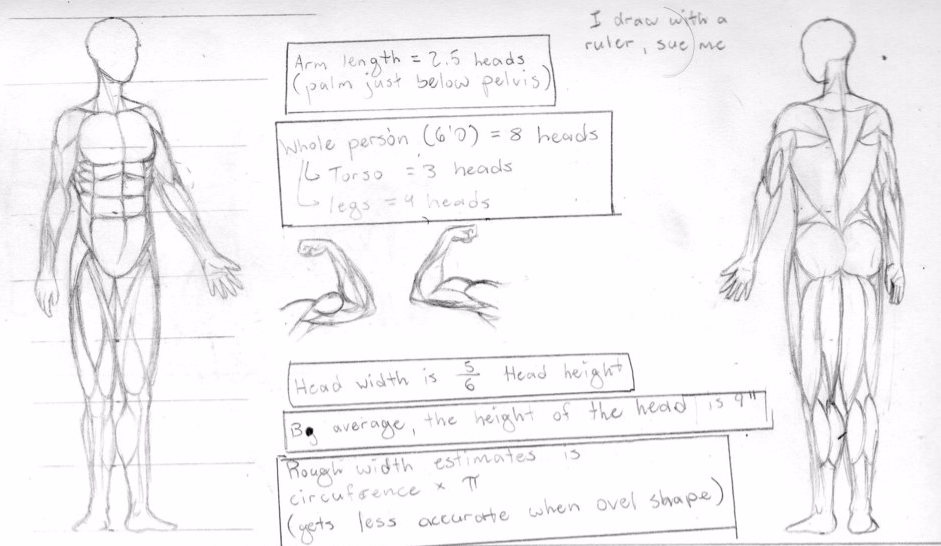 I draw with a
ruler, sue me
Arm length = 2.5 heads
(palm just below pelvis)
Whole person (6'0) = 8 heads
↳ Torso = 3 heads
↳ legs = 4 heads
Head width is 5/6 Head height
By average, the height of the head is 9"
Rough width estimates is
circufrence × π
(gets less accurate when ovel shape)